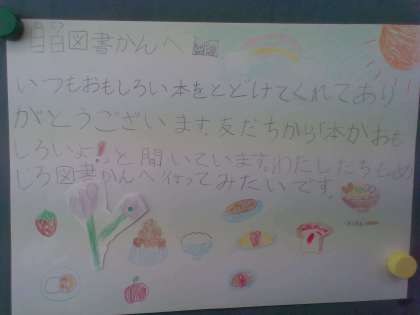 目白図書かんへ
いつもおもしろい本をとどけてくれてあり
がとうございます。友だちから「本がおも
しろいよ!」と聞いています。わたしたちもめ
じろ図書かんへ行ってみたいです。